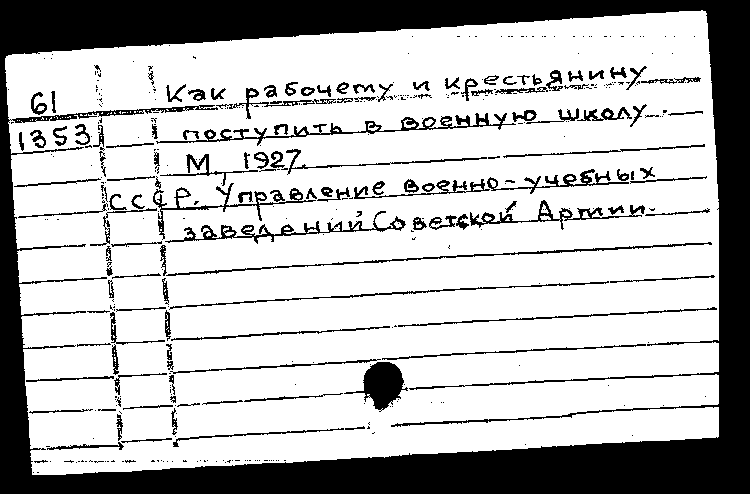 61 Как рабочему и крестьянину
1353 поступить в военную школу.
М., 1927.
СССР. Управление военно-учебных
заведений Советской Армии.